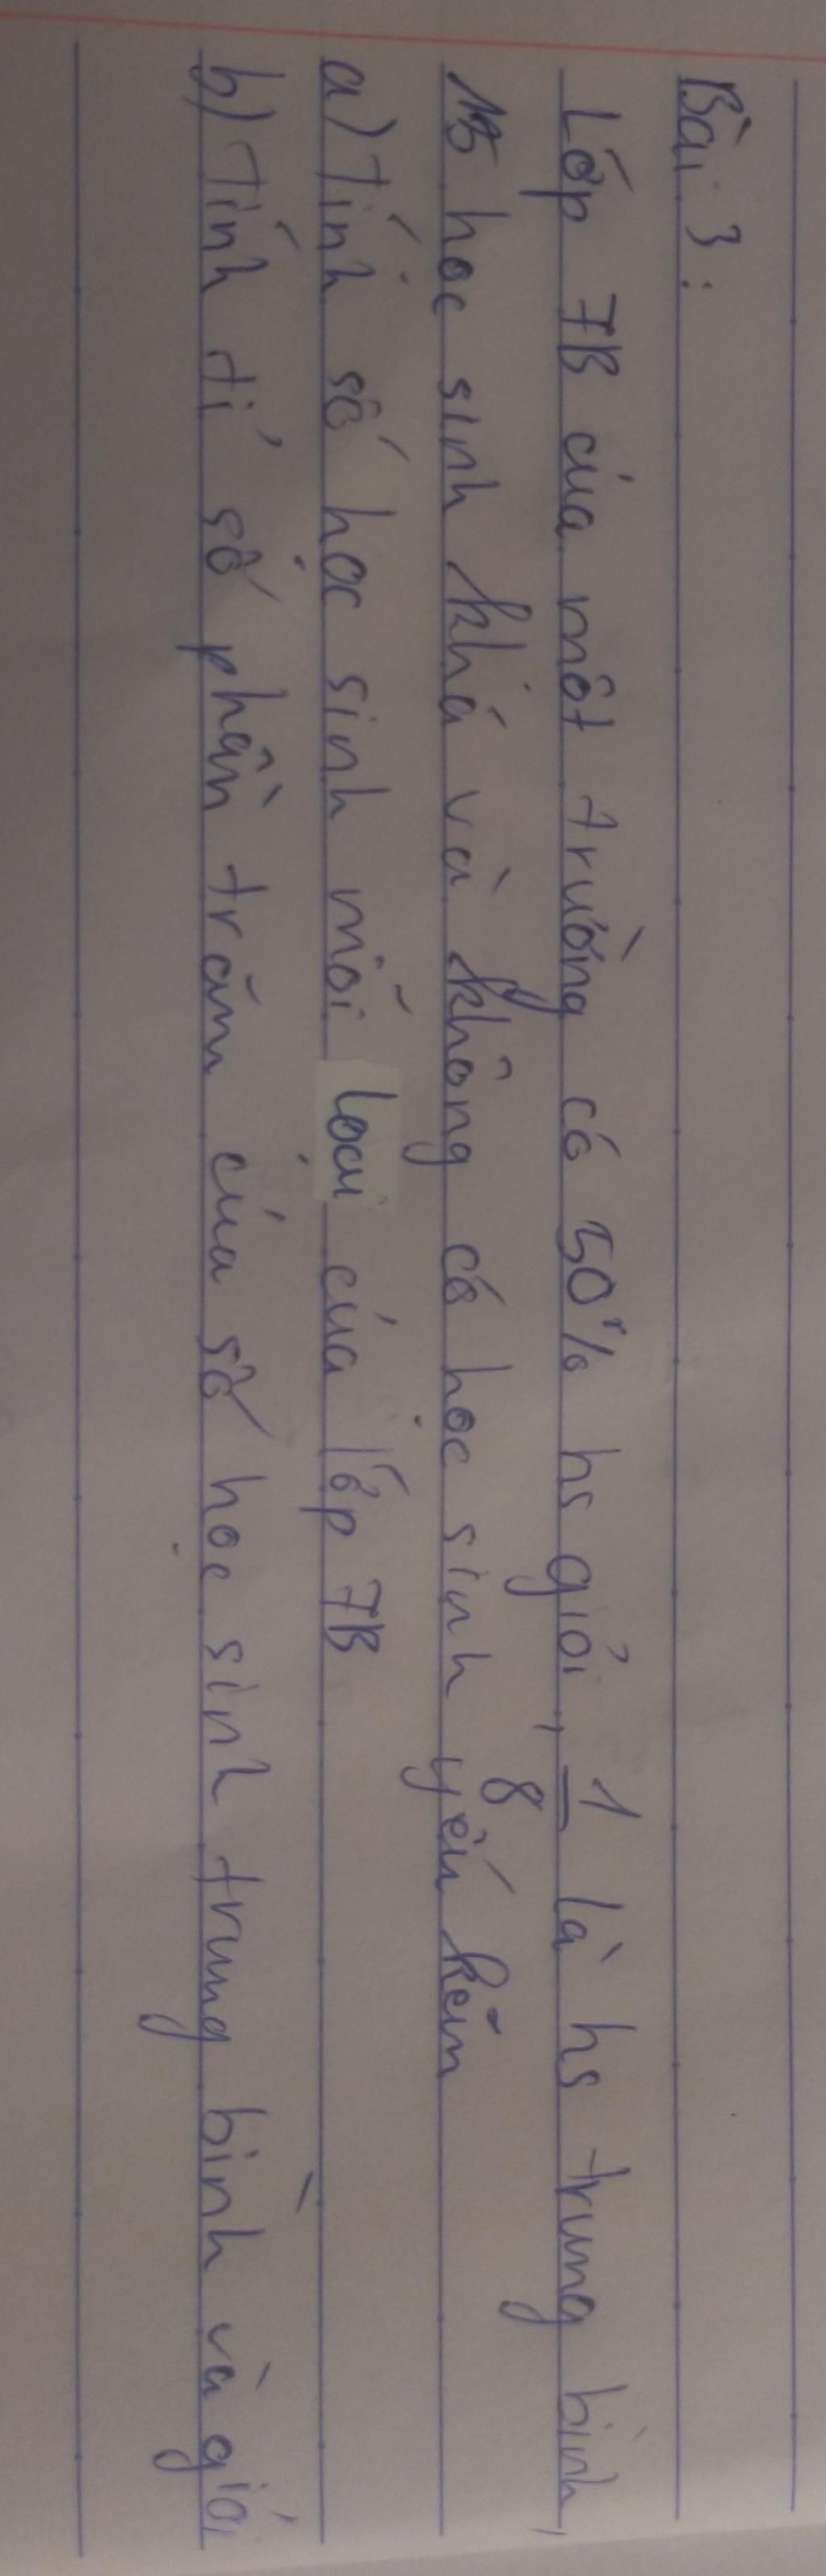 Bài 3:
Lớp 7B của một trường có 50% hs giỏi, 1/8 là hs trung bình,
15 học sinh khá và không có học sinh yếu kém
a) Tính số học sinh mỗi loại của lớp 7B
b) Tính tỉ số phần trăm của số học sinh trung bình và giỏi